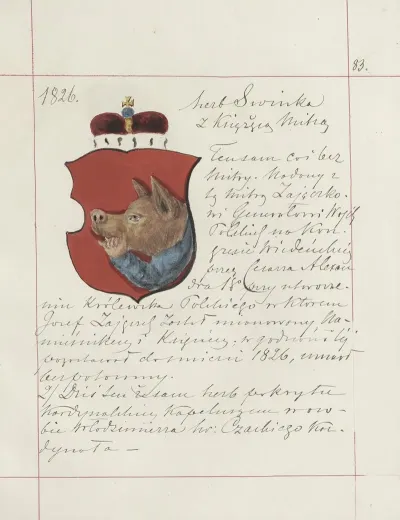 83.
1826.
herb Swinka
z Książęcą Mitrą
Ten sam co i bez
Mitry. Nadany z
tą Mitrą Zajączko-
wi Generałowi Wojsk
Polskich na Kon-
gresie Wiedeńskim
przez Cesarza Alexan
dra 1go przy utworze-
niu Królewstwa Polskiego w którem
Józef Zajączek został mianowany Na-
miestnikiem i Księciem; w godności tej
pozostawał do śmierci 1826, umarł
bezpotomny.
2/ Dziś ten że sam herb pokryty
Kardynalskim Kapeluszem w oso-
bie Włodzimierza hr: Czackiego Kar-
dynała –